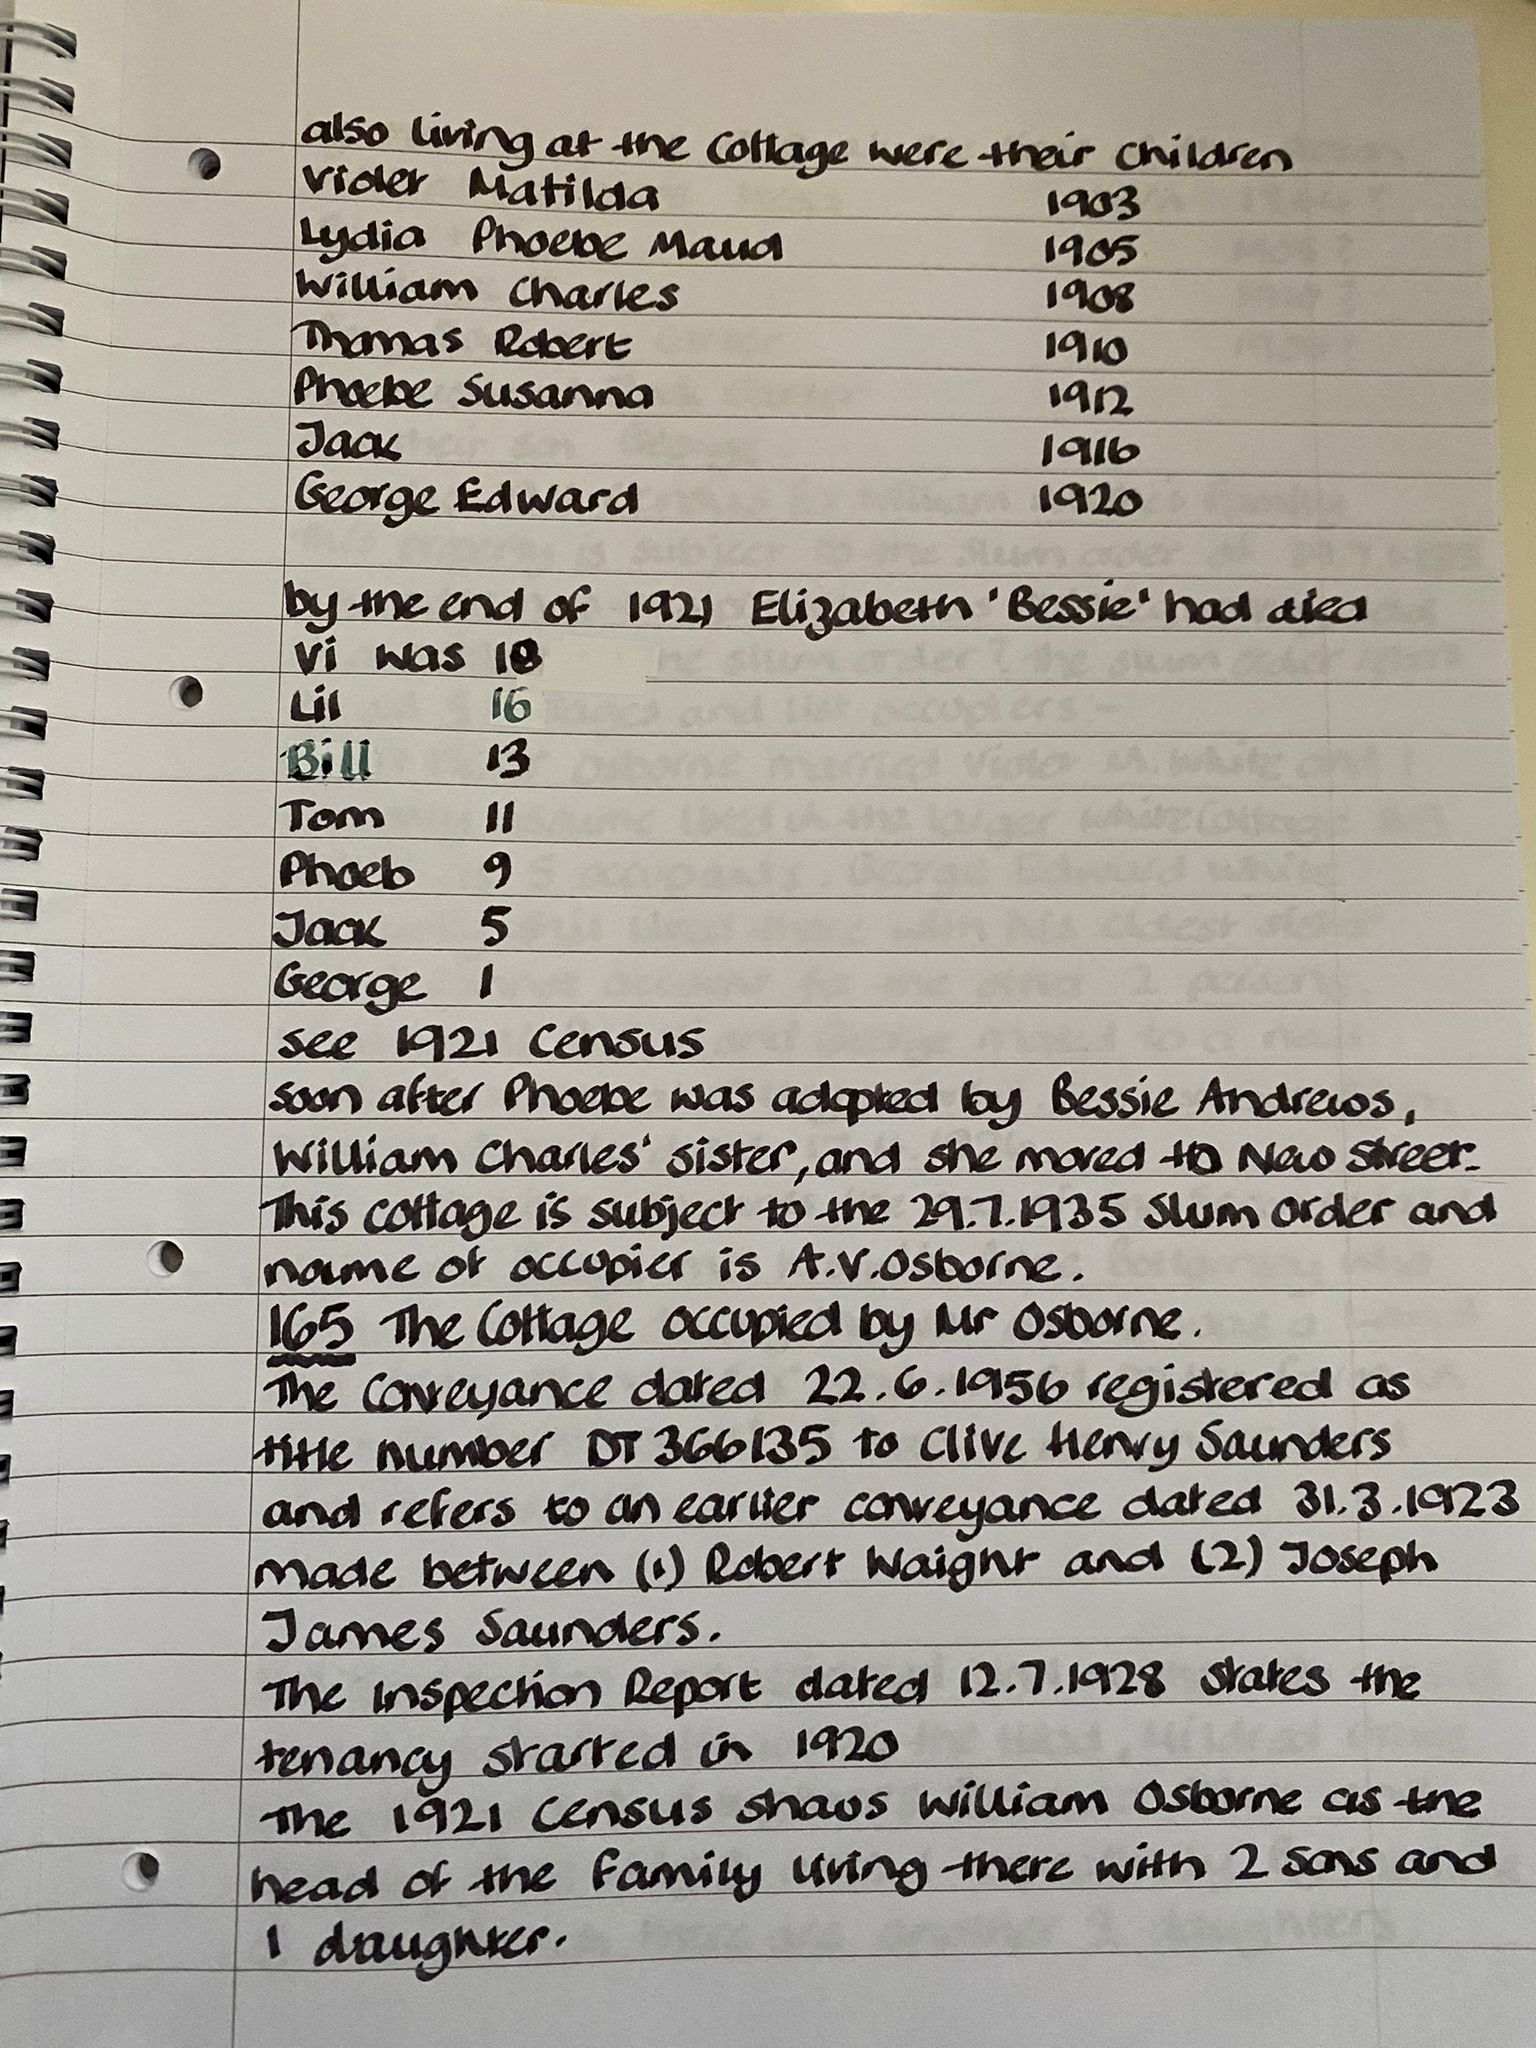 also living at the Cottage were their children
Violet Matilda 1903
Lydia Phoebe Maud 1905
William Charles 1908
Thomas Robert 1910
Phoebe Susanna 1912
Jack 1916
George Edward 1920
by the end of 1921 Elizabeth 'Bessie' had died
Vi was 18
Lil 16
Bill 13
Tom 11
Phoeb 9
Jack 5
George 1
see 1921 Census
soon after Phoebe was adopted by Bessie Andrews,
William Charles' sister, and she moved to New Street.
This cottage is subject to the 29.7.1935 Slum Order and
name of occupier is A.V. Osborne.
165 The Cottage occupied by Mr Osborne.
The Conveyance dated 22.6.1956 registered as
title number DT 366135 to Clive Henry Saunders
and refers to an earlier conveyance dated 31.3.1923
made between (1) Robert Waight and (2) Joseph
James Saunders.
The Inspection Report dated 12.7.1928 states the
tenancy started in 1920
The 1921 Census shows William Osborne as the
head of the Family living there with 2 sons and
1 daughter.